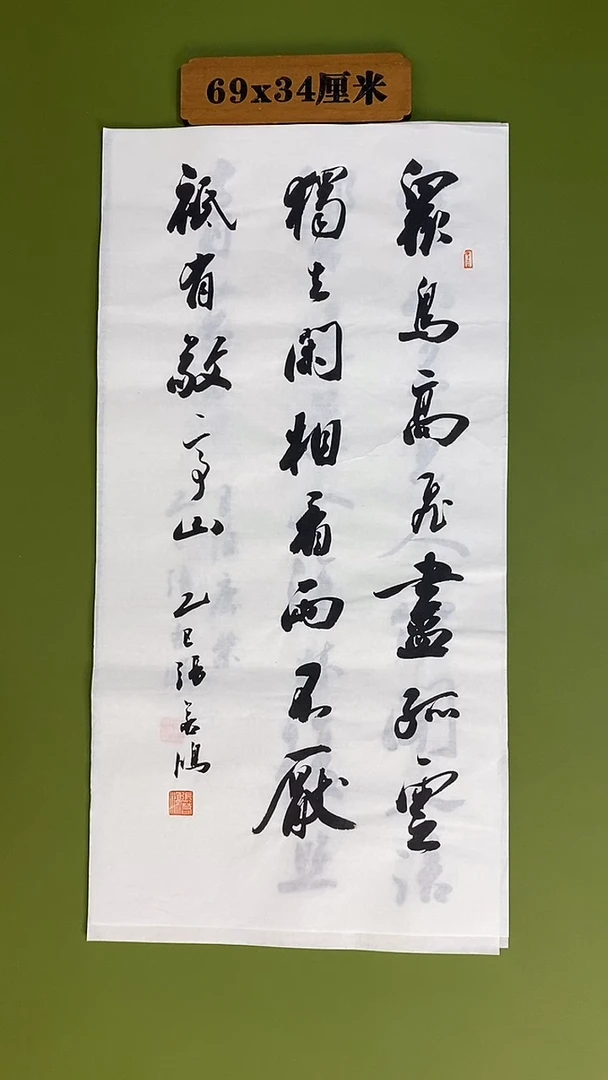 69x34厘米
眾鳥高飛盡孤雲
獨去閑相看兩不厭
祇有敬亭山 乙巳張